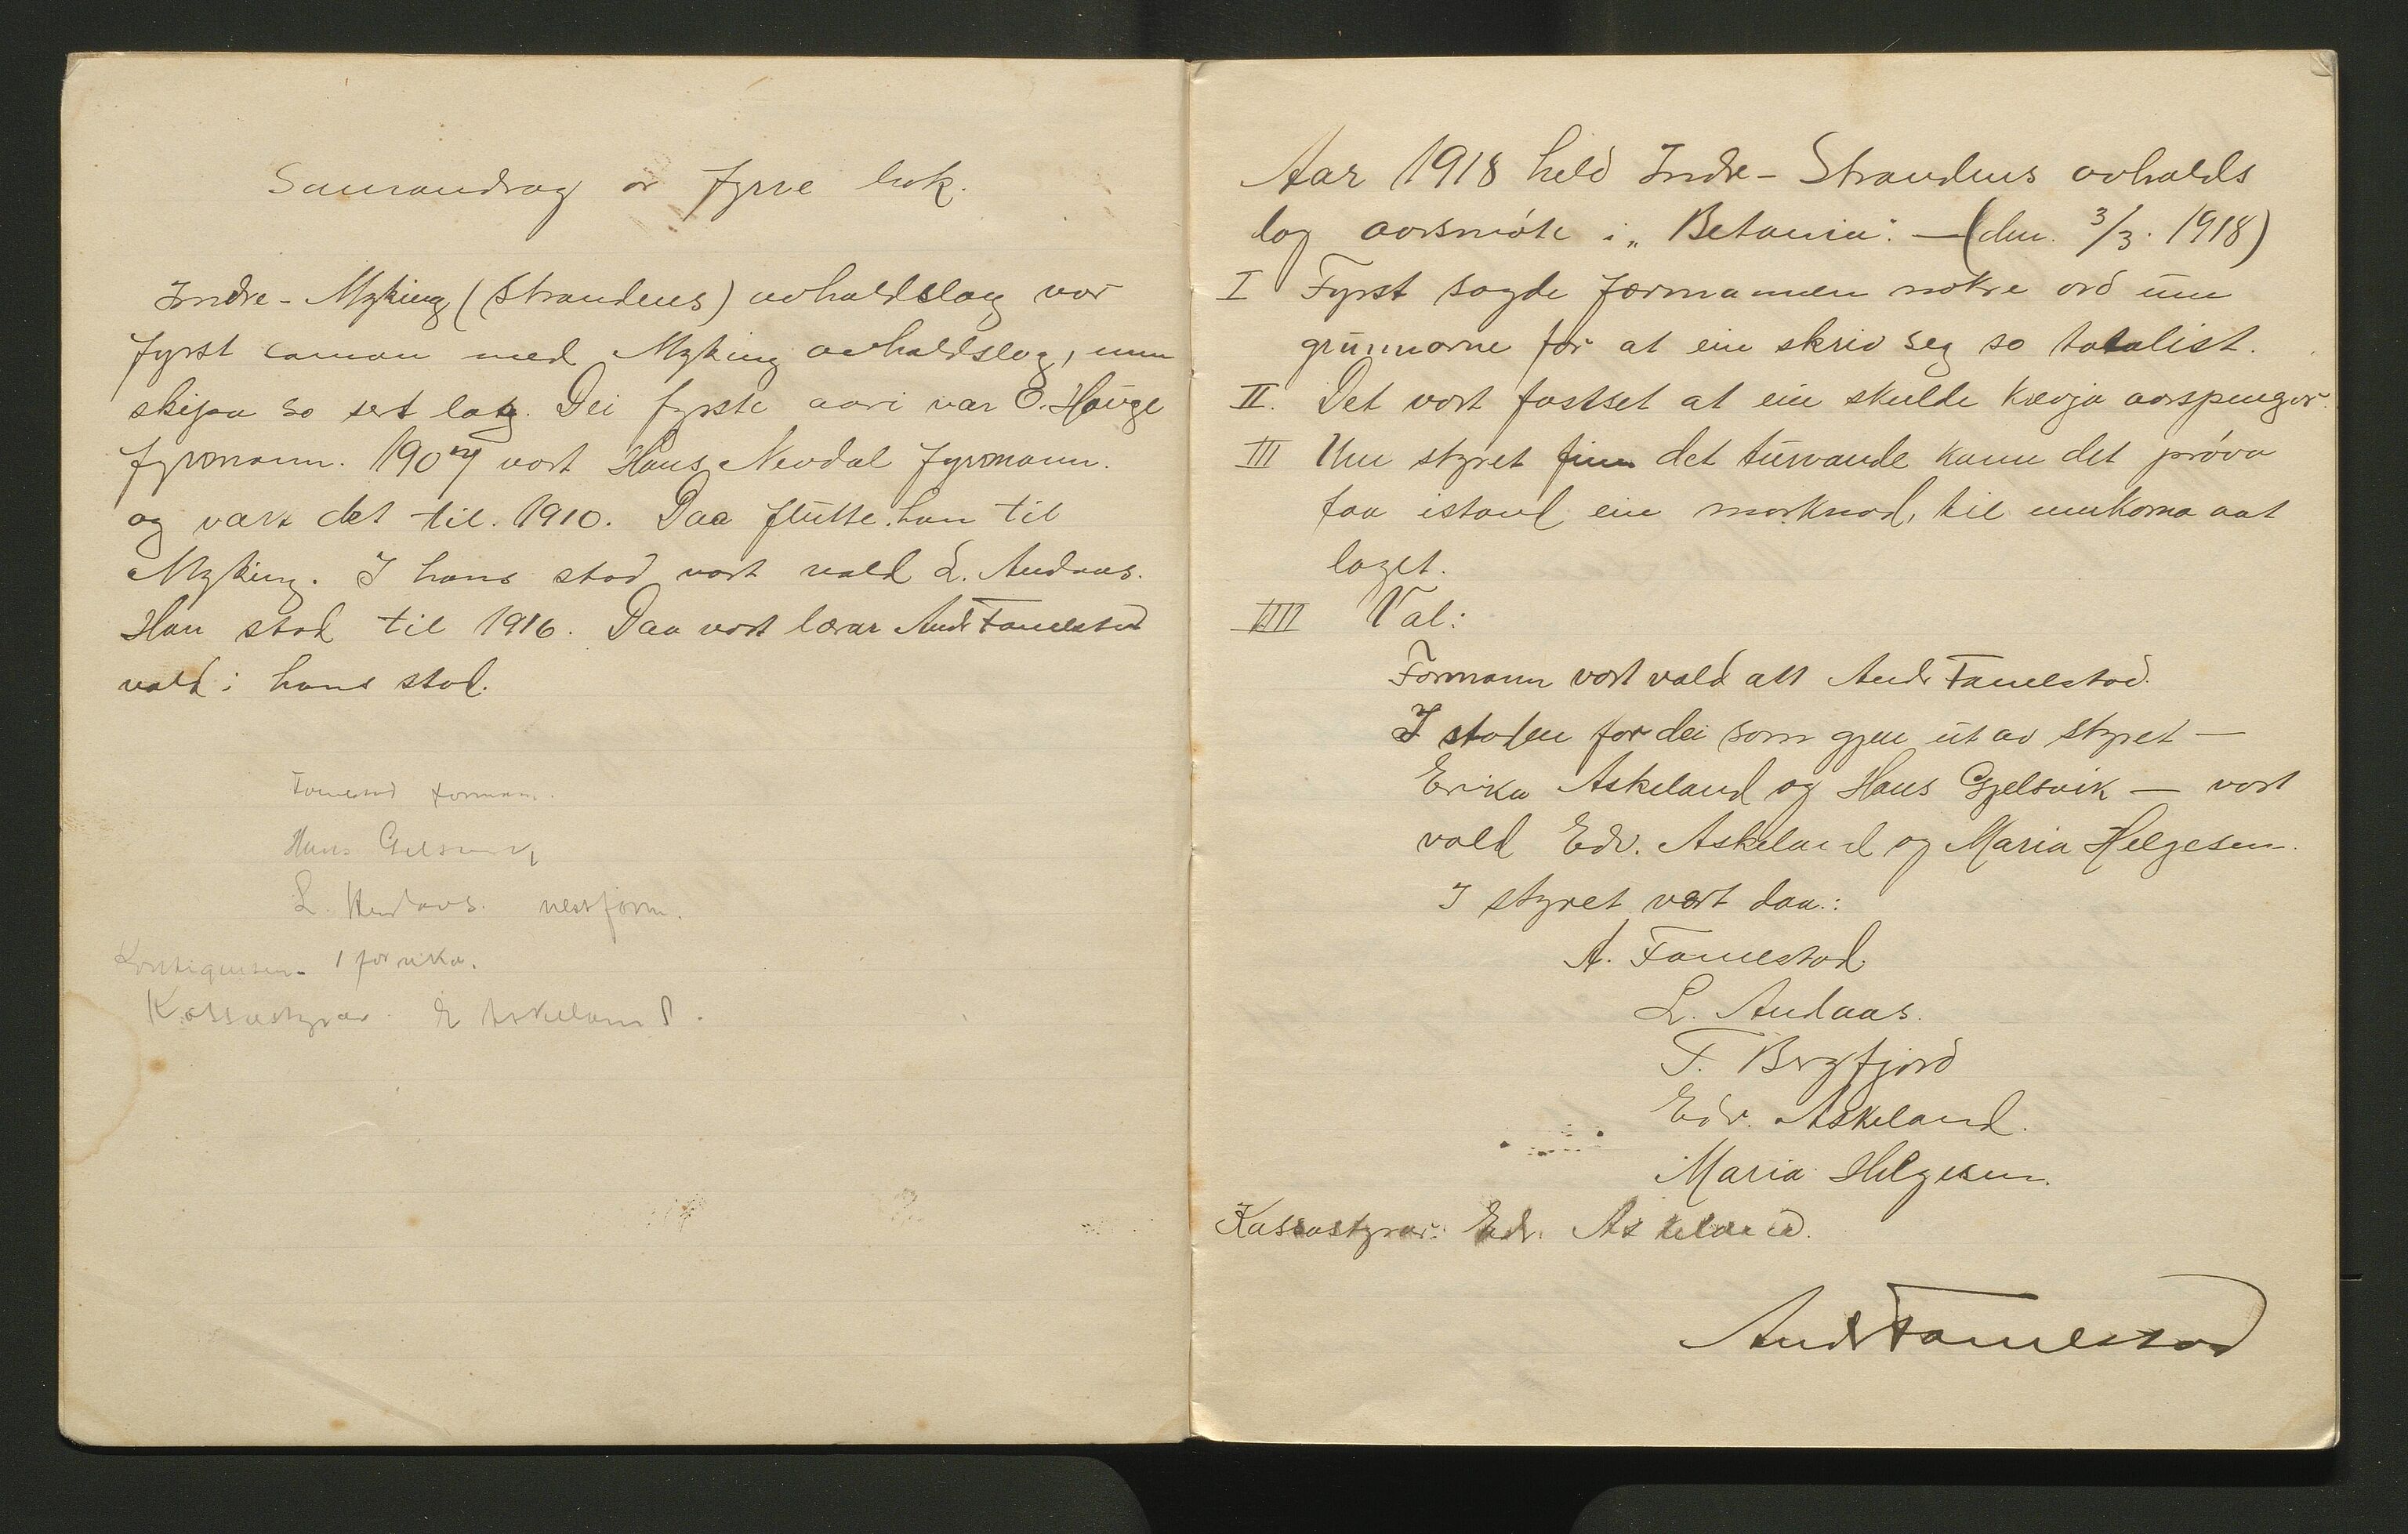 Samandrag or fyrre bok.
Indre-Myking (Strandens) avhaldslag var
fyrst saman med Myking avhaldslag, men
skipa so sert lag. Dei fyrste aari var O. Hauge
fyrmann. 1907 vart Hans Nevdal fyrmann.
og vart det til. 1910. Daa flutte han til
Myking. I hans stad vart vald L. Andaas.
Han stod til 1916. Daa vart lærar Andr Famestad
vald i hans stad.
Famestad formann.
Hans
L. Andaas. nestform.
1 for vika.
Kassastyrar E Askeland.
Aar 1918 held Indre-Strandens avhalds
lag aarsmöte i „Betania". — (den. 3/3. 1918)
I Fyrst sagde formannen nokre ord um
grunnarne for at ein skriv seg so totalist.
II. Det vart fastset at ein skulde krevja aarspengar.
III Um styret finn det turvande kann det pröva
faa istand ein marknad, til innkoma aat
laget.
IIII Val:
Formann vart vald att Andr Famestad.
I staden for dei som gjen ut av styret —
Erika Askeland og Hans Gjelsvik — vart
vald Edv. Askeland og Maria Helgesen.
I styret vart daa:
A. Famestad.
L. Andaas.
T. Bergfjord
Edv. Askeland.
Maria Helgesen.
Kassastyrar: Edv. Askeland.
Andr Famestad